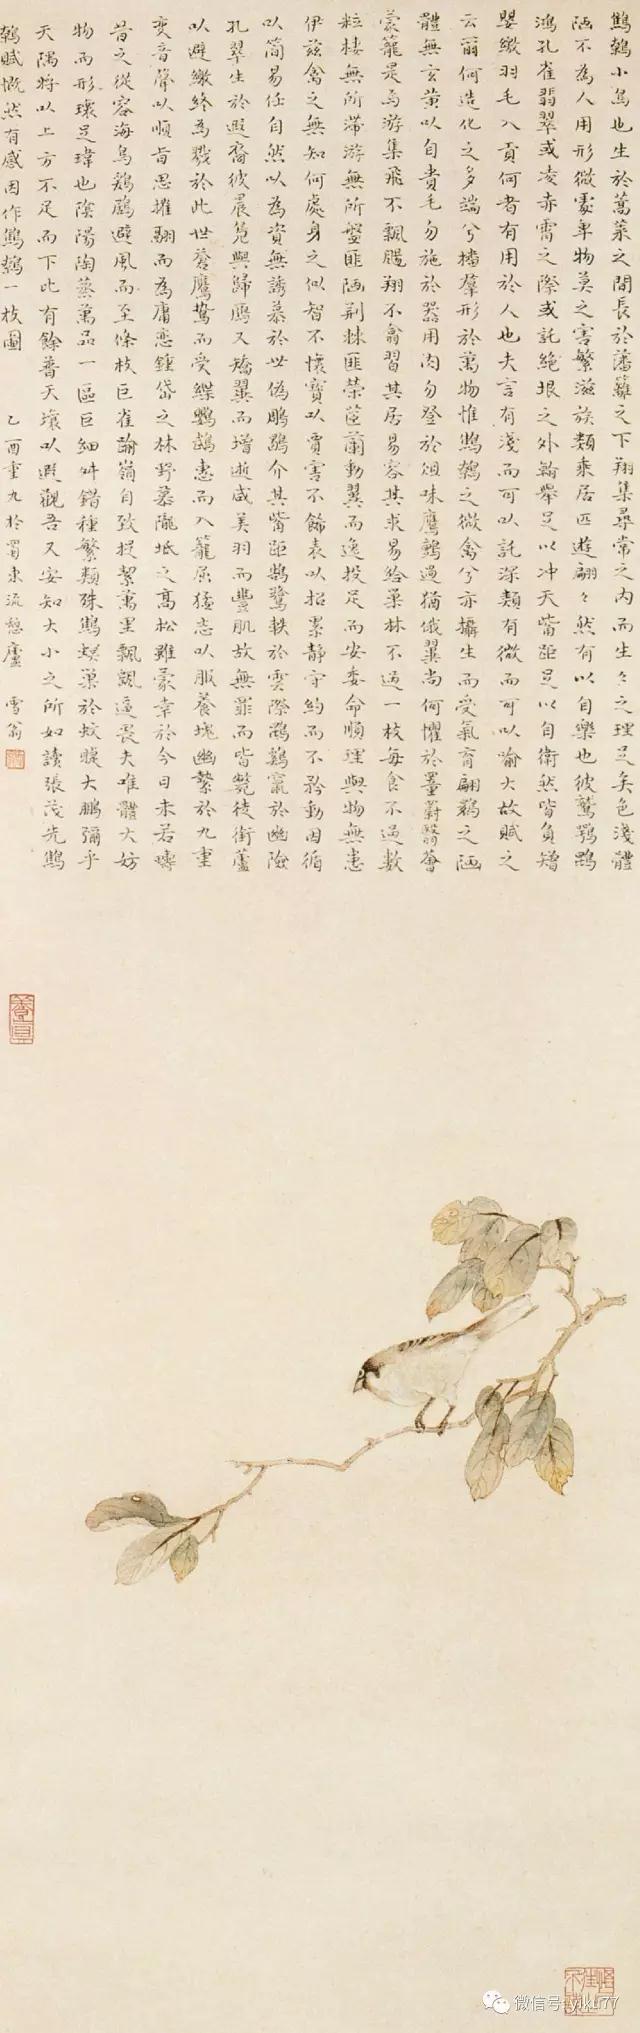 鷦鷯小鳥也生於蒿萊之間長於藩籬之下翔集尋常之內而生々之理足矣色淺體
陋不為人用形微處卑物莫之害繁滋族類乘居匹遊翩々然有以自樂也彼鷲鶚鵾
鴻孔雀翡翠或凌赤霄之際或託絕垠之外翰舉足以冲天觜距足以自衛然皆負矰
嬰繳羽毛入貢何者有用於人也夫言有淺而可以託深類有微而可以喻大故賦之
云爾何造化之多端兮播羣形於萬物惟鷦鷯之微禽兮亦攝生而受氣育翩翾之陋
體無玄黃以自貴毛勿施於器用肉勿登於俎味鷹鸇過猶俄翼尚何懼於罿罻翳薈
蒙籠是焉游集飛不飄颺翔不翕習其居易容其求易給巢林不過一枝每食不過數
粒棲無所滯游無所盤匪陋荆棘匪榮茝蘭動翼而逸投足而安委命順理與物無患
伊茲禽之無知何處身之似智不懷寶以賈害不飾表以招累靜守約而不矜動因循
以簡易任自然以為資無誘慕於世偽鵰鶡介其觜距鵠鷺軼於雲際鵾鷄竄於幽險
孔翠生於遐裔彼晨鳧與歸鴈又矯翼而增逝咸美羽而豐肌故無罪而皆斃徒銜蘆
以避繳終為戮於此世蒼鷹鷙而受緤鸚鵡惠而入籠屈猛志以服養塊幽縶於九重
變音聲以順旨思摧翮而為庸戀鍾岱之林野慕隴坻之高松雖蒙幸於今日未若疇
昔之從容海鳥鶢鶋避風而至條枝巨雀踰嶺自致提挈萬里飄颻逼畏夫唯體大妨
物而形瓌足瑋也陰陽陶蒸萬品一區巨細舛錯種繁類殊鷦螟巢於蚊睫大鵬彌乎
天隅將以上方不足而下比有餘普天壤以遐觀吾又安知大小之所如讀張茂先鷦
鷯賦慨然有感因作鷦鷯一枝圖 乙酉重九於蜀東流憩廬 雪翁
養真
微信号: yiku77